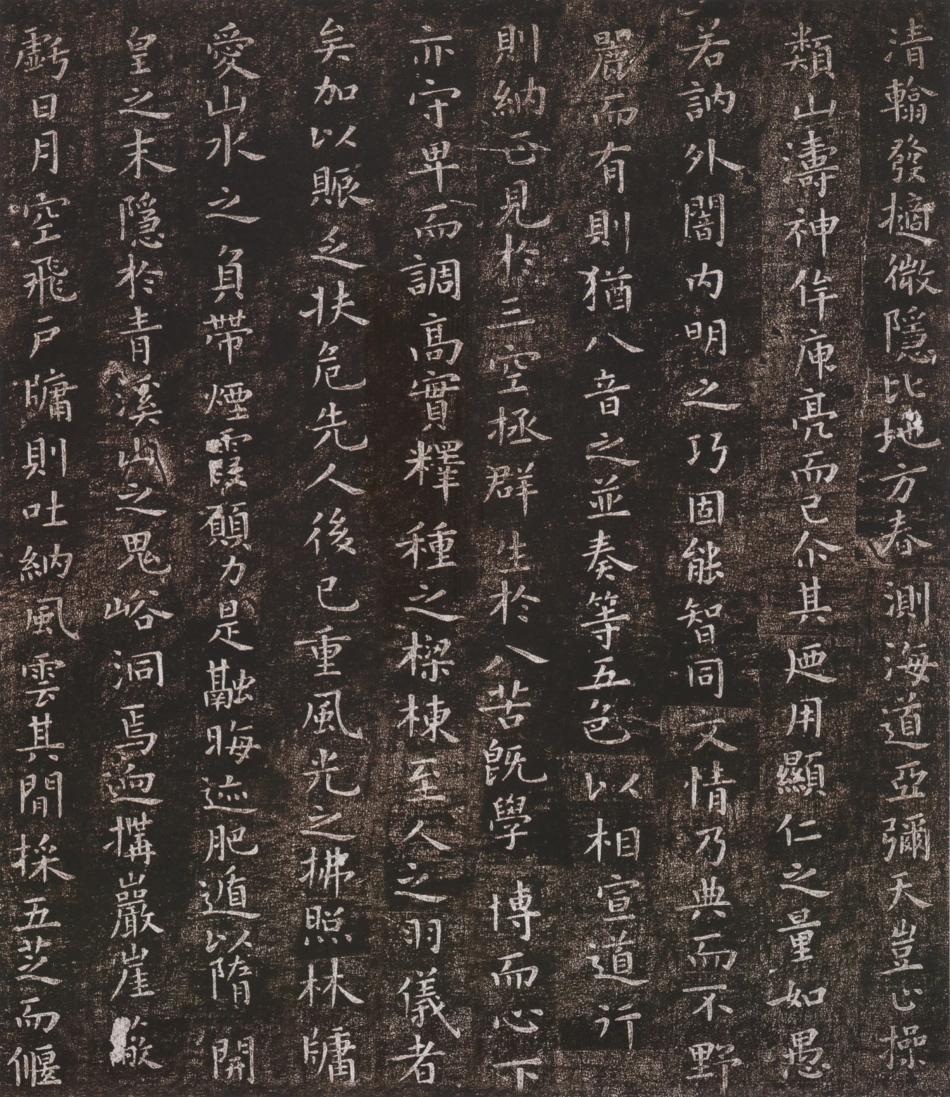 清翰發擿微隱比地方春測海道亞彌天豈止操
類山濤神侔庾亮而已尒其迺用顯仁之量如愚
若訥外闇內明之巧固能智同文情乃典而不野
麗而有則猶八音之並奏等五色以相宣道行
則納正見於三空拯群生於八苦既學博而心下
亦守卑而調高實釋種之樑棟至人之羽儀者
矣加以賑乏扶危先人後己重風光之拂照林牖
愛山水之負帶煙霞願力是融晦迹肥遁以隋開
皇之末隱於青溪山之鬼峪洞焉迥搆巖崖
虧日月空飛戶牖則吐納風雲其間採五芝而偃